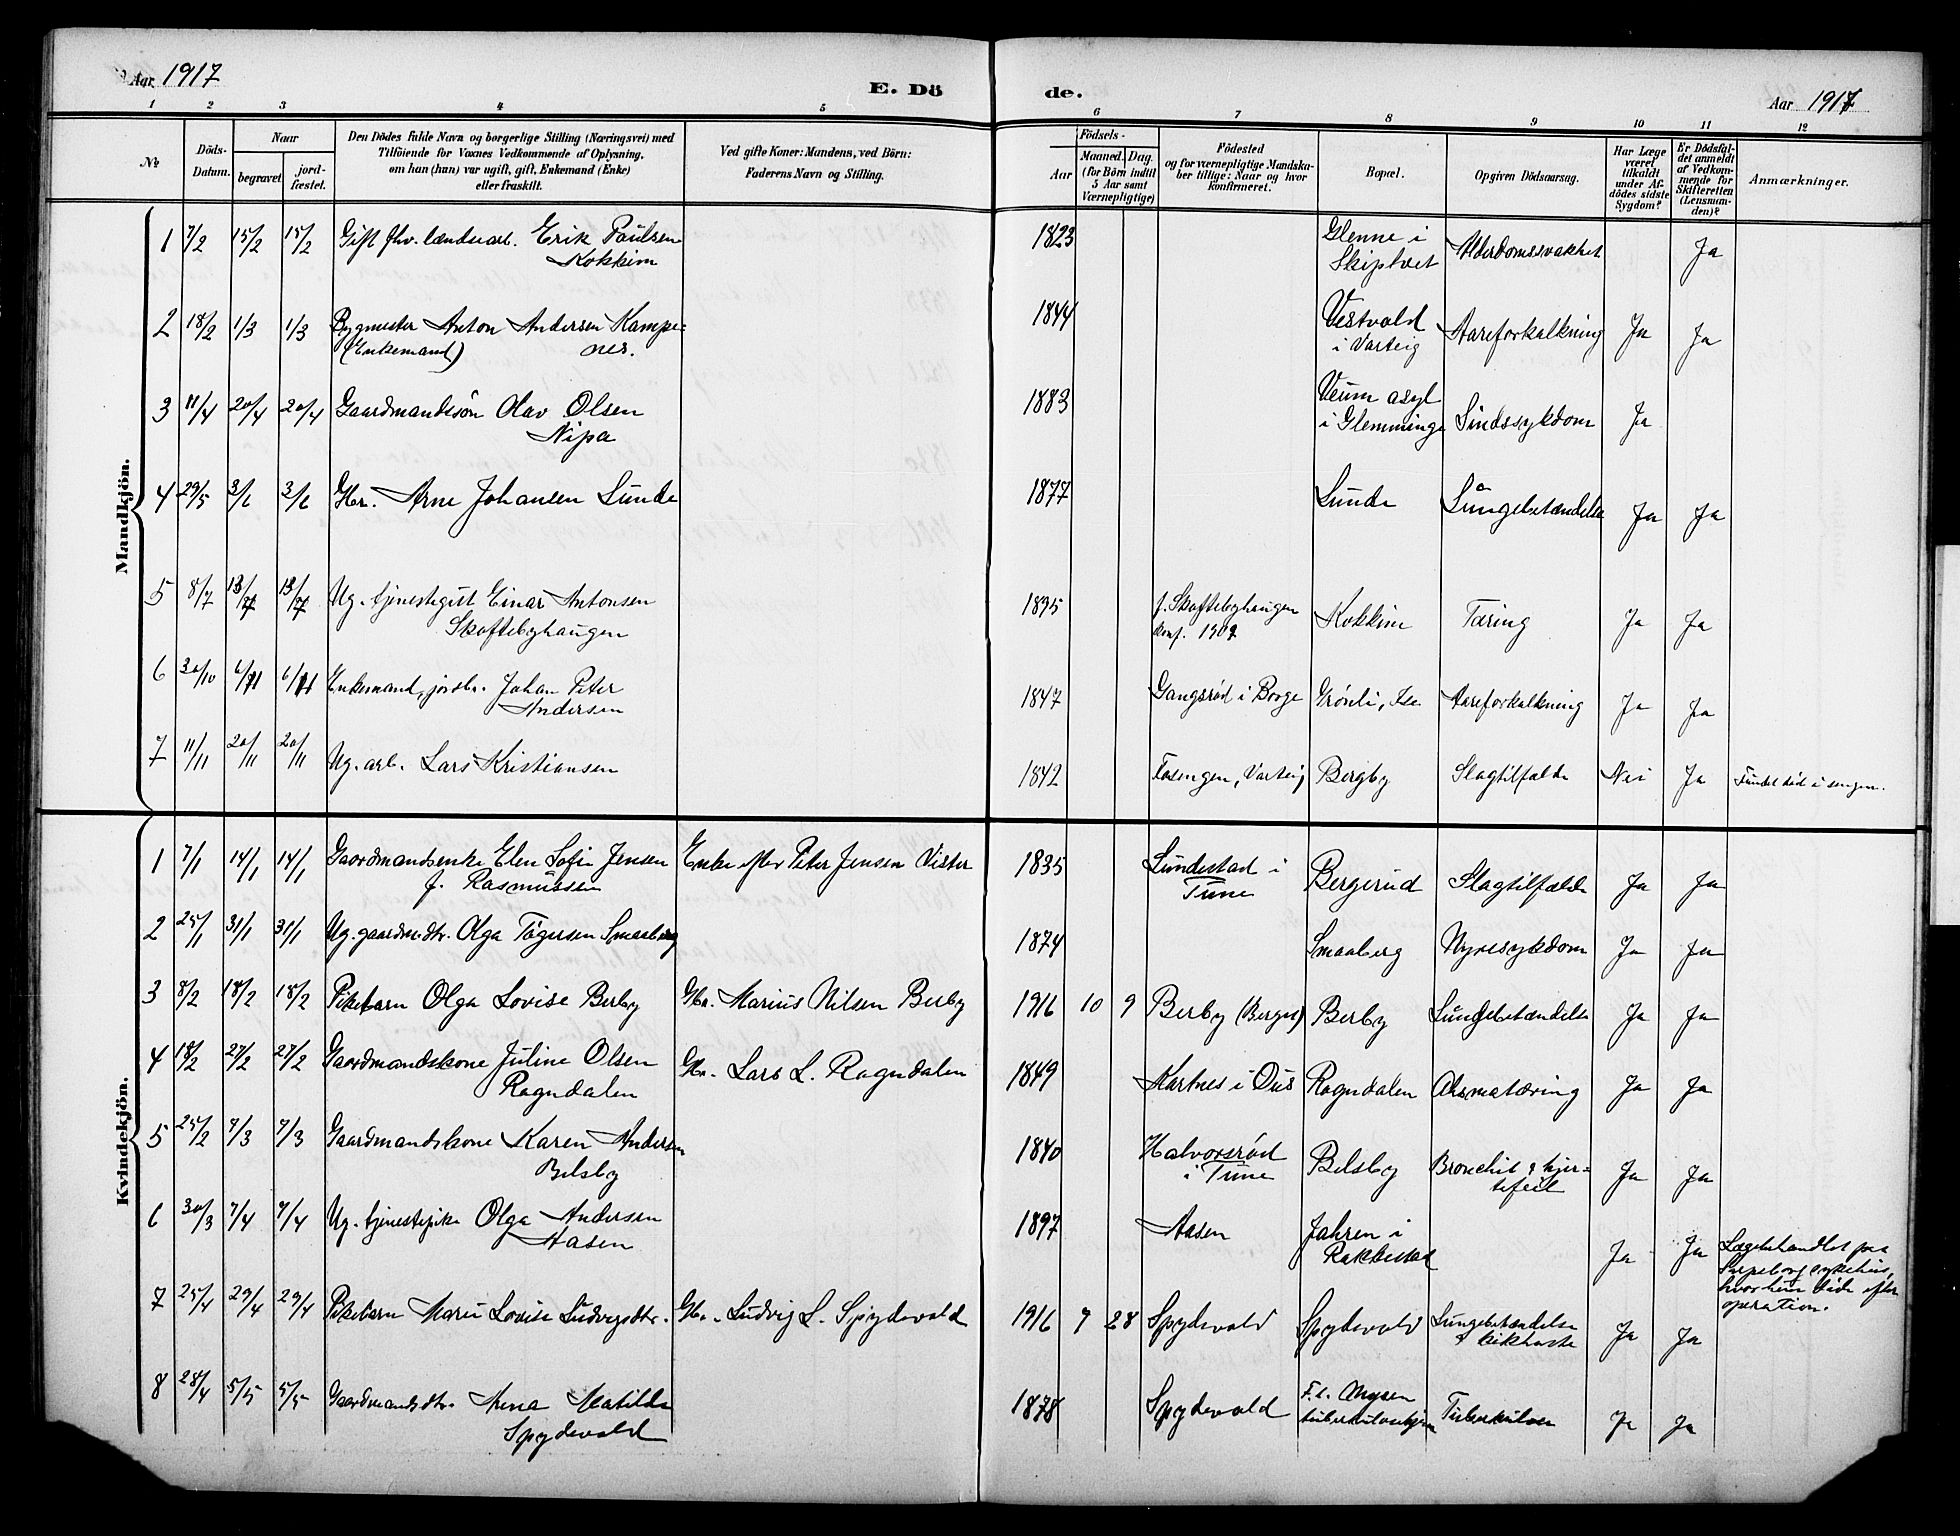 Aar 1917
E. Dö
de.
Aar 1917
1 2 3 4 5 6 7 8 9 10 11 12
№
Döds-
Datum.
Naar
begravet
jord-
fæstet.
Den Dödes fulde Navn og borgerlige Stilling (Næringsvei) med
Tilföiende for Voxnes Vedkommende af Oplysning,
om han (hun) var ugift, gift, Enkemand (Enke)
eller fraskilt.
Ved gifte Koner: Mandens, ved Börn:
Faderens Navn og Stilling.
Födsels-
Aar
Maaned. Dag.
(for Börn indtil
5 Aar samt
Værnepligtige)
Födested
og for værnepligtige Mandska-
ber tillige: Naar og hvor
konfirmeret.
Bopæl.
Opgiven Dödsaarsag.
Har Læge
været
tilkaldt
under Af-
dödes sidste
Sygdom?
Er Dödsfal-
det anmeldt
af Vedkom-
mende for
Skifteretten
(Lensman-
den)?
Anmærkninger.
Mandkjön.
1 7/2 15/2 15/2 Gift fhv. landarb. Erik Paulsen 1823 Glenne i Alderdomssvakhet Ja
Kokkim Skiptvet
2 18/2 1/3 1/3 Bygmester Anton Andersen Kampe- 1844 Vestvold Aareforkalkning Ja Ja
(Enkemand) nes. i Varteig
3 11/4 20/4 20/4 Gaardmandssøn Olav Olsen 1883 Veum asyl Sindssykdom Ja
Nipa i Glemminge
4 29/5 3/6 3/6 Gbr. Arne Johansen Lunde 1877 Lunde Lungebetændelse Ja Ja
5 8/7 13/7 13/7 Ug. tjenestegut Einar Antonsen 1895 f. Skoftebyhaugen Kokkim Tæring Ja Ja
Skoftebyhaugen konf. 1909
6 30/10 6/11 6/11 Enkemand, jordbr. Johan Peter 1847 Gangsrød i Borge Grønli, Ise Aareforkalkning Ja Ja
Andersen
7 11/11 20/11 20/11 Ug. arb. Lars Kristiansen 1842 Fosengen, Varteig Bergby Slagtilfælde Nei Ja Fundet død i sengen.
Kvindekjön.
1 7/1 14/1 14/1 Gaardmandsenke Elen Sofie Jensen Enke efter Peter Jensen Vister 1835 Lundestad i Bergerud Slagtilfælde Ja Ja
f. Rasmussen Tune
2 25/1 31/1 31/1 Ug. gaardmdtr. Olga Tøgersen Smaaberg 1874 Smaaberg Nyresykdom Ja Ja
3 8/2 18/2 18/2 Pikebarn Olga Lovise Berby Gbr. Marius Nilsen Berby 1916 10 9 Berby (Berger) Berby Lungebetændelse Ja Ja
4 18/2 27/2 27/2 Gaardmandskone Juline Olsen Gbr. Lars L. Rogndalen 1849 Kartnes i Øus Rogndalen Alsmatæring Ja Ja
Rogndalen
5 25/2 7/3 7/3 Gaardmandskone Karen Andersen 1840 Halvorsrød Belsby Bronchit & hjer- Ja Ja
Belsby i Tune tefeil
6 30/3 7/4 7/4 Ug. tjenestepike Olga Andersen 1897 Aasen Jahren i Ja Ja Lægebehandlet paa
Aasen Rakkestad Sarpsborg sykehus,
hvor hun døde efter
operation.
7 25/4 29/4 29/4 Pikebarn Marie Lovise Ludvigsdtr. Gbr. Ludvig L. Spydevold 1916 7 28 Spydevold Spydevold Lungebetændelse Ja Ja
& kikhoste
8 28/4 5/5 5/5 Gaardmandsdtr. Anna Matilde 1878 Spydevold F.t. Mysen Tuberkulose Ja Ja
Spydevold tuberkulosehjem